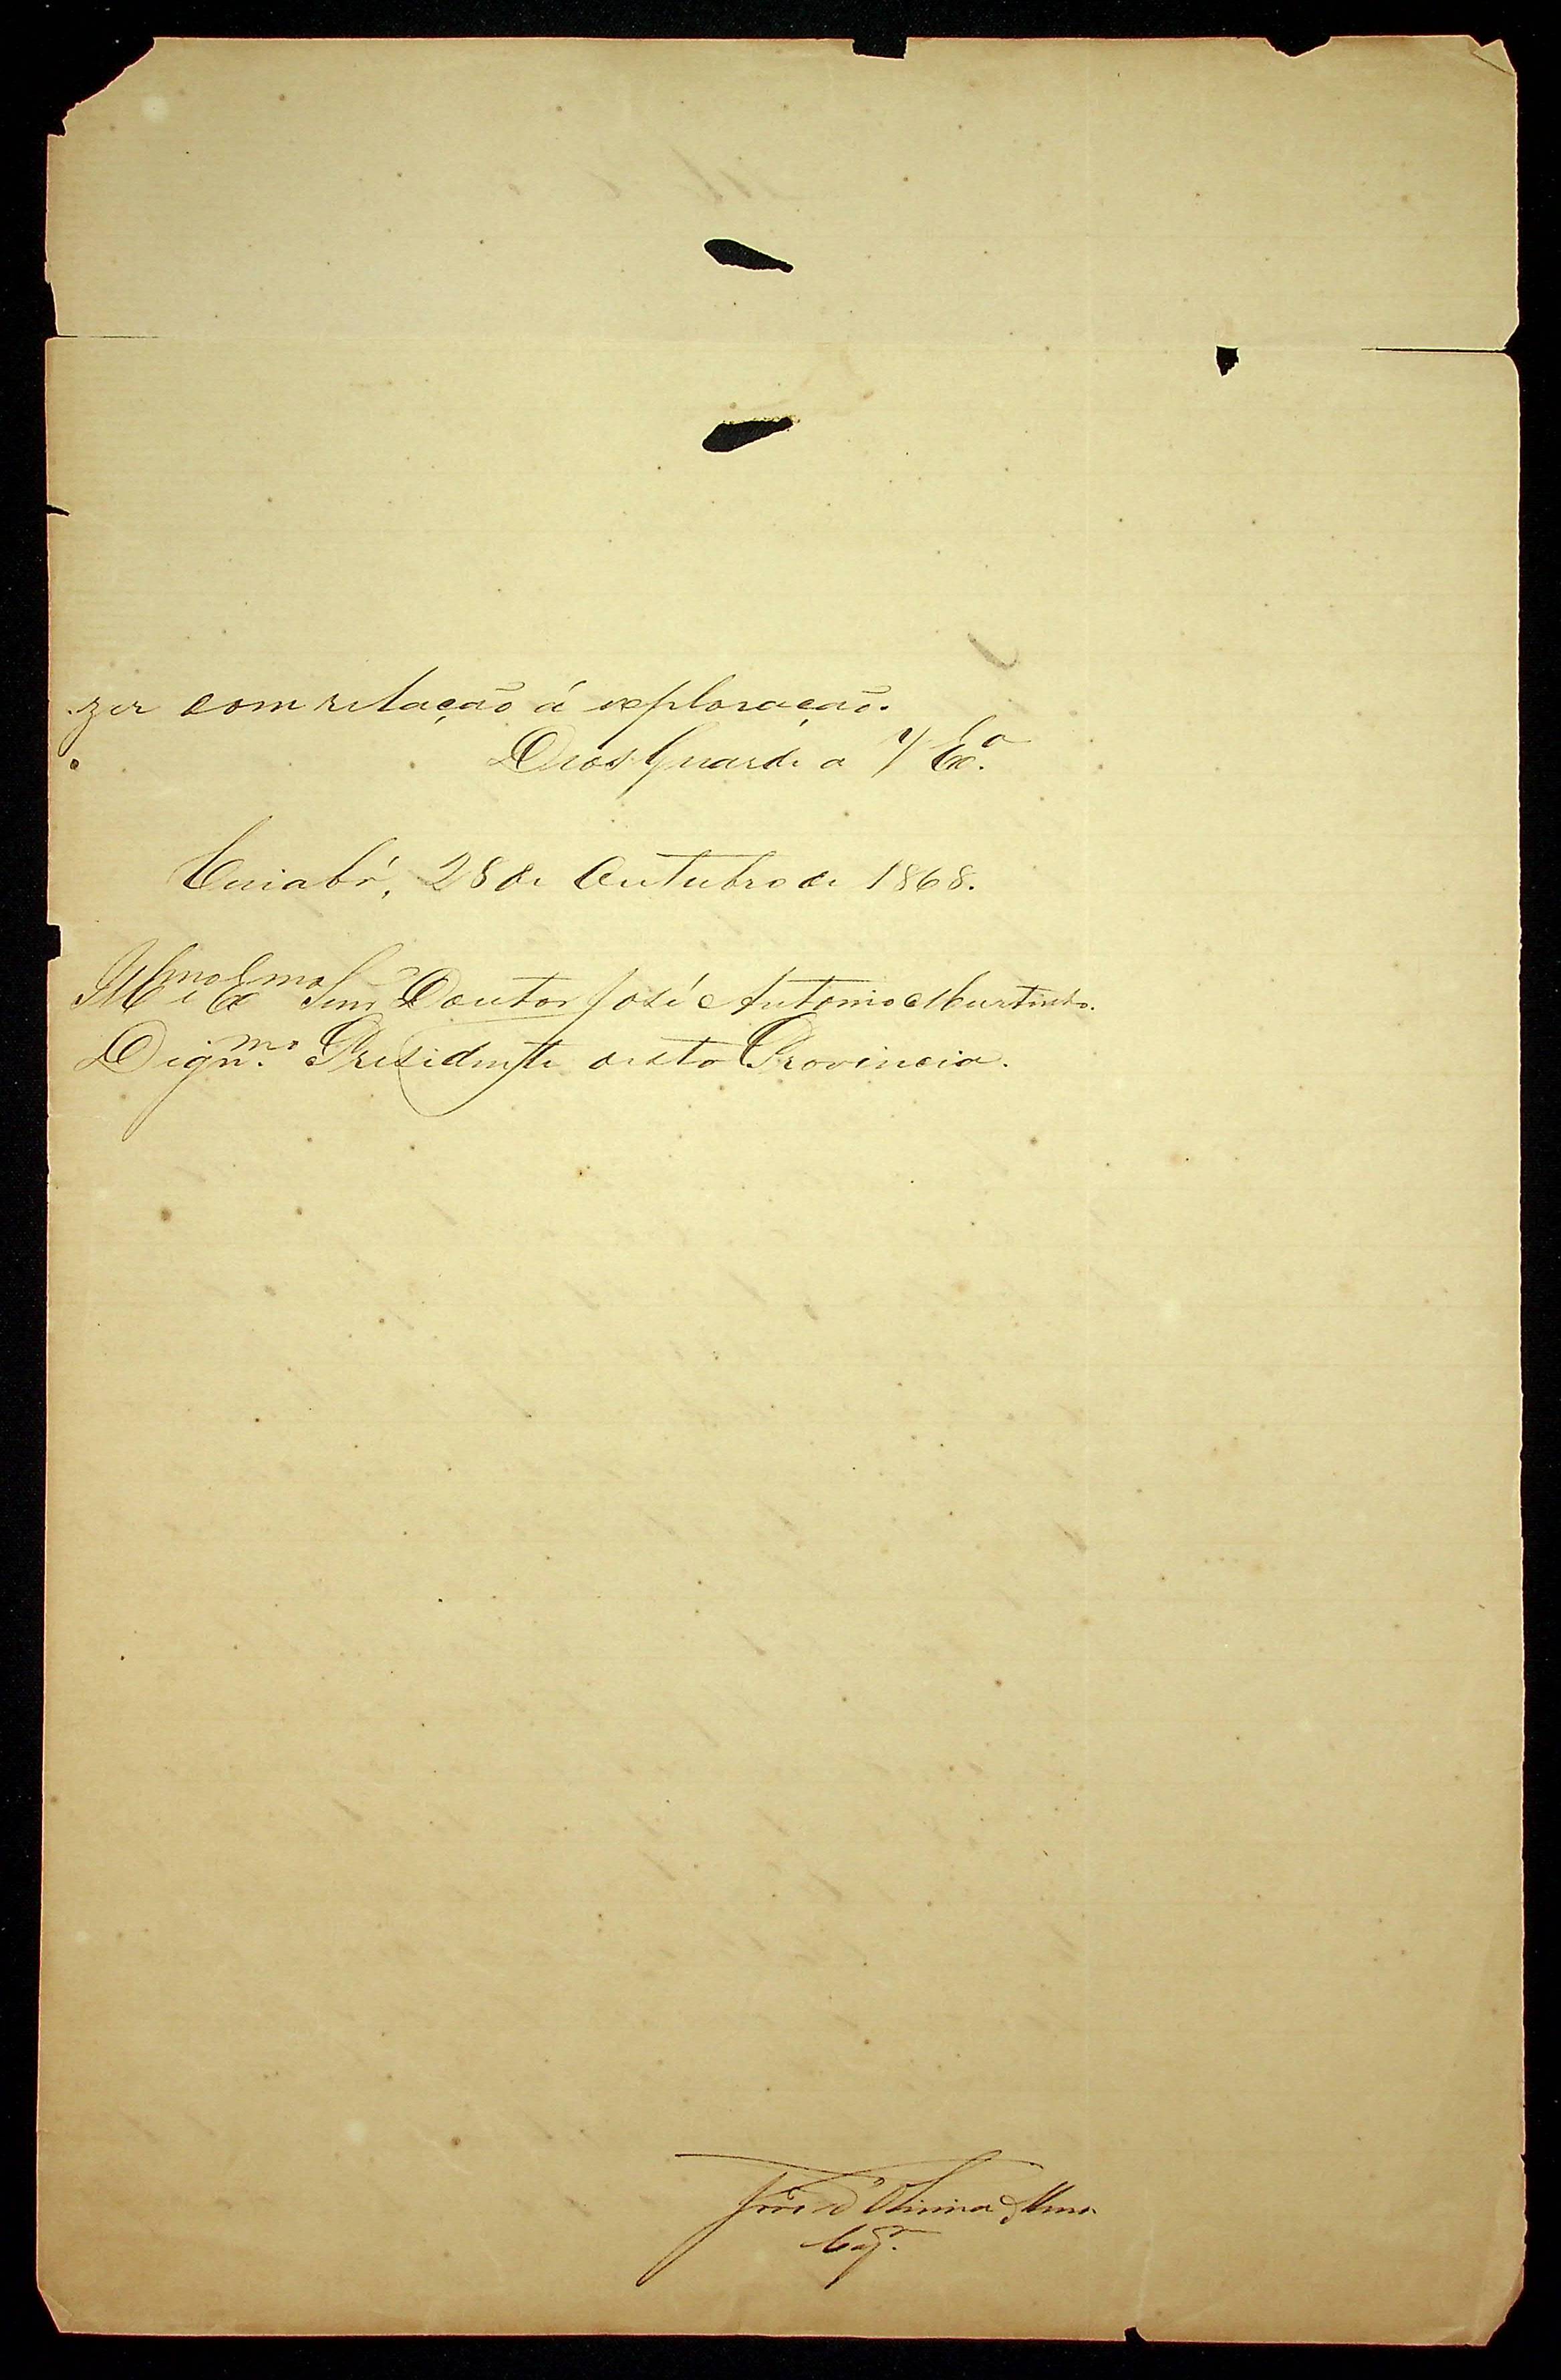 zer com relação á exploração.
Deos Guarde a V Ex.ª
Cuiabá, 28 de Outubro de 1868.
Illmo e Exmo Senr Doutor José Antonio Murtinho.
Dignmo. Presidente desta Provincia.
d'Oliveira
Capm.